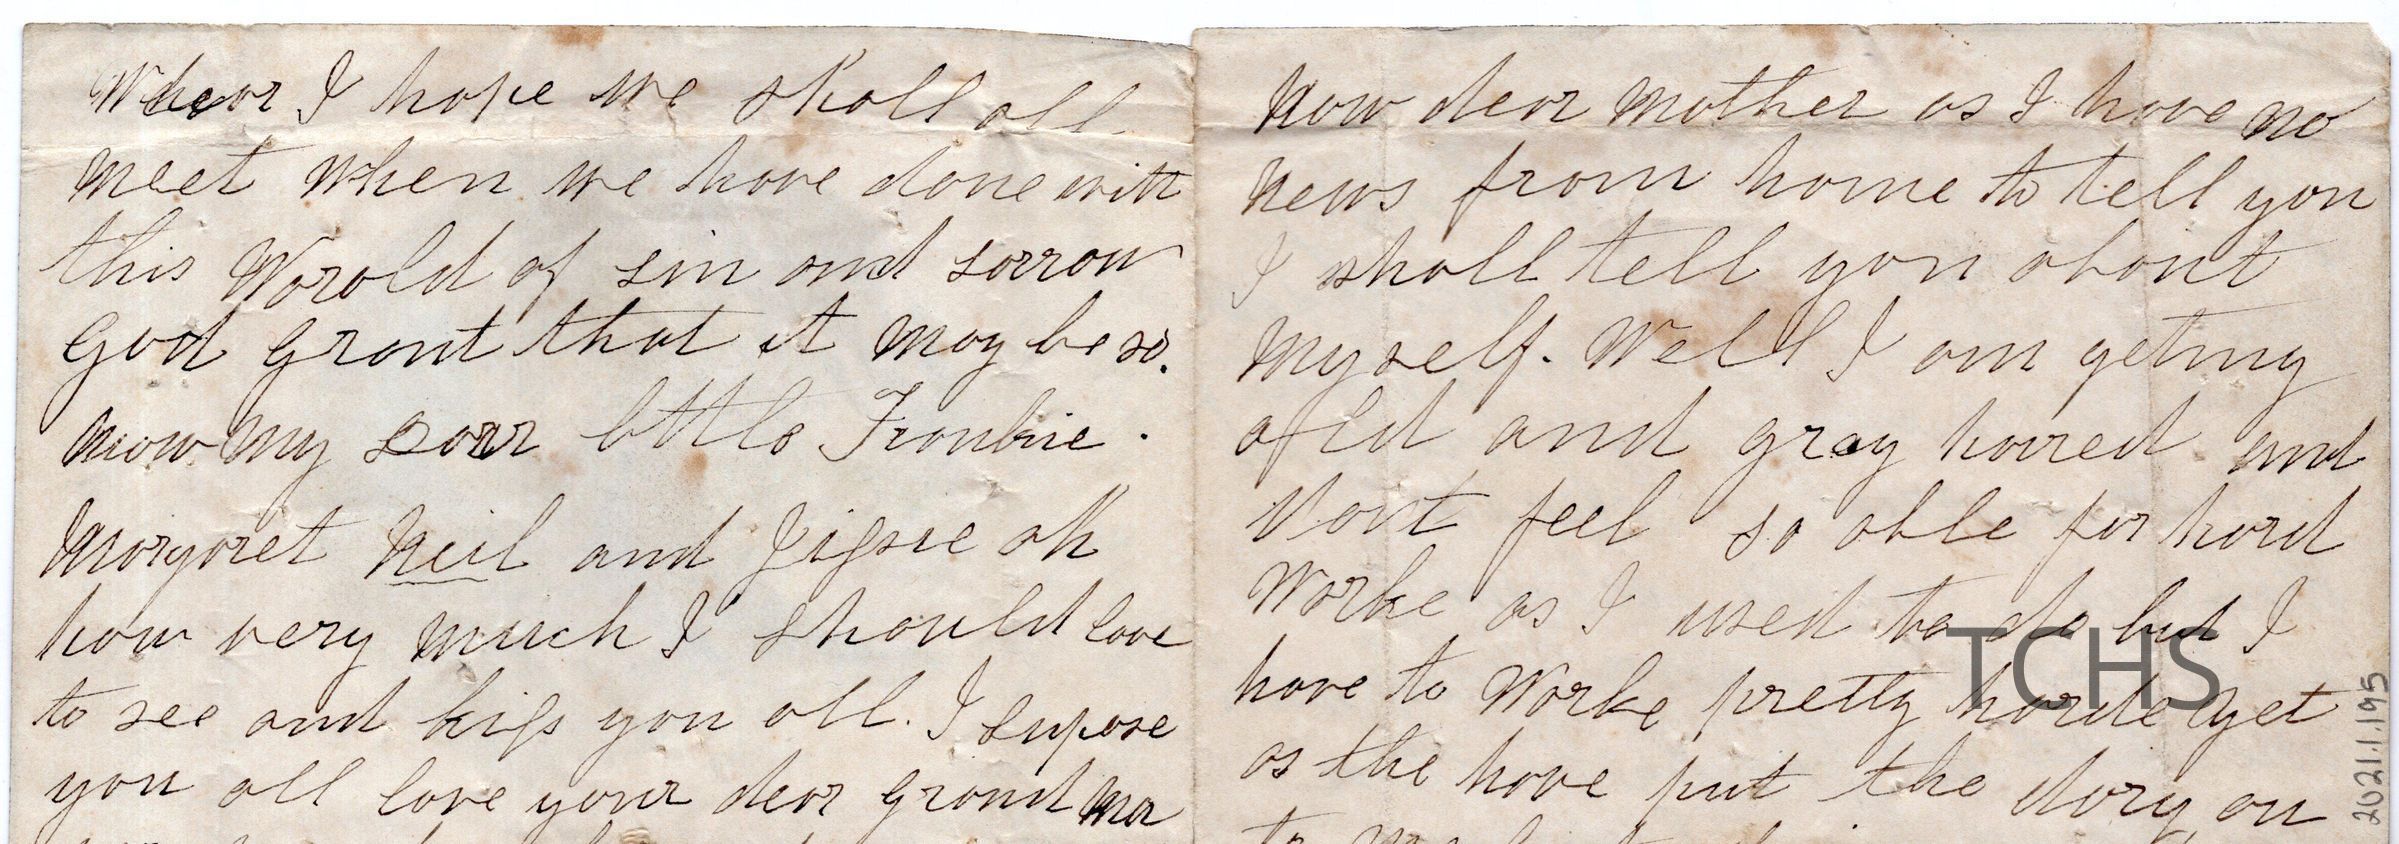 Whear I hope we shall all
meet when we have done with
this Worold of sin and sorrow
God grant that it may be so.
now my dear little Frankie.
Margaret Neil and Jipsie oh
how very much I should love
to see and kiss you all. I supose
you all love your dear grand ma
Now dear mother as I have no
news from home to tell you
I shall tell you about
myself. Well I am geting
old and gray haired and
dont feel so able for hard
Worke as I used to do but I
have to Worke pretty harde yet
as the have put the dary on
to me
TCHS
2021.1.195